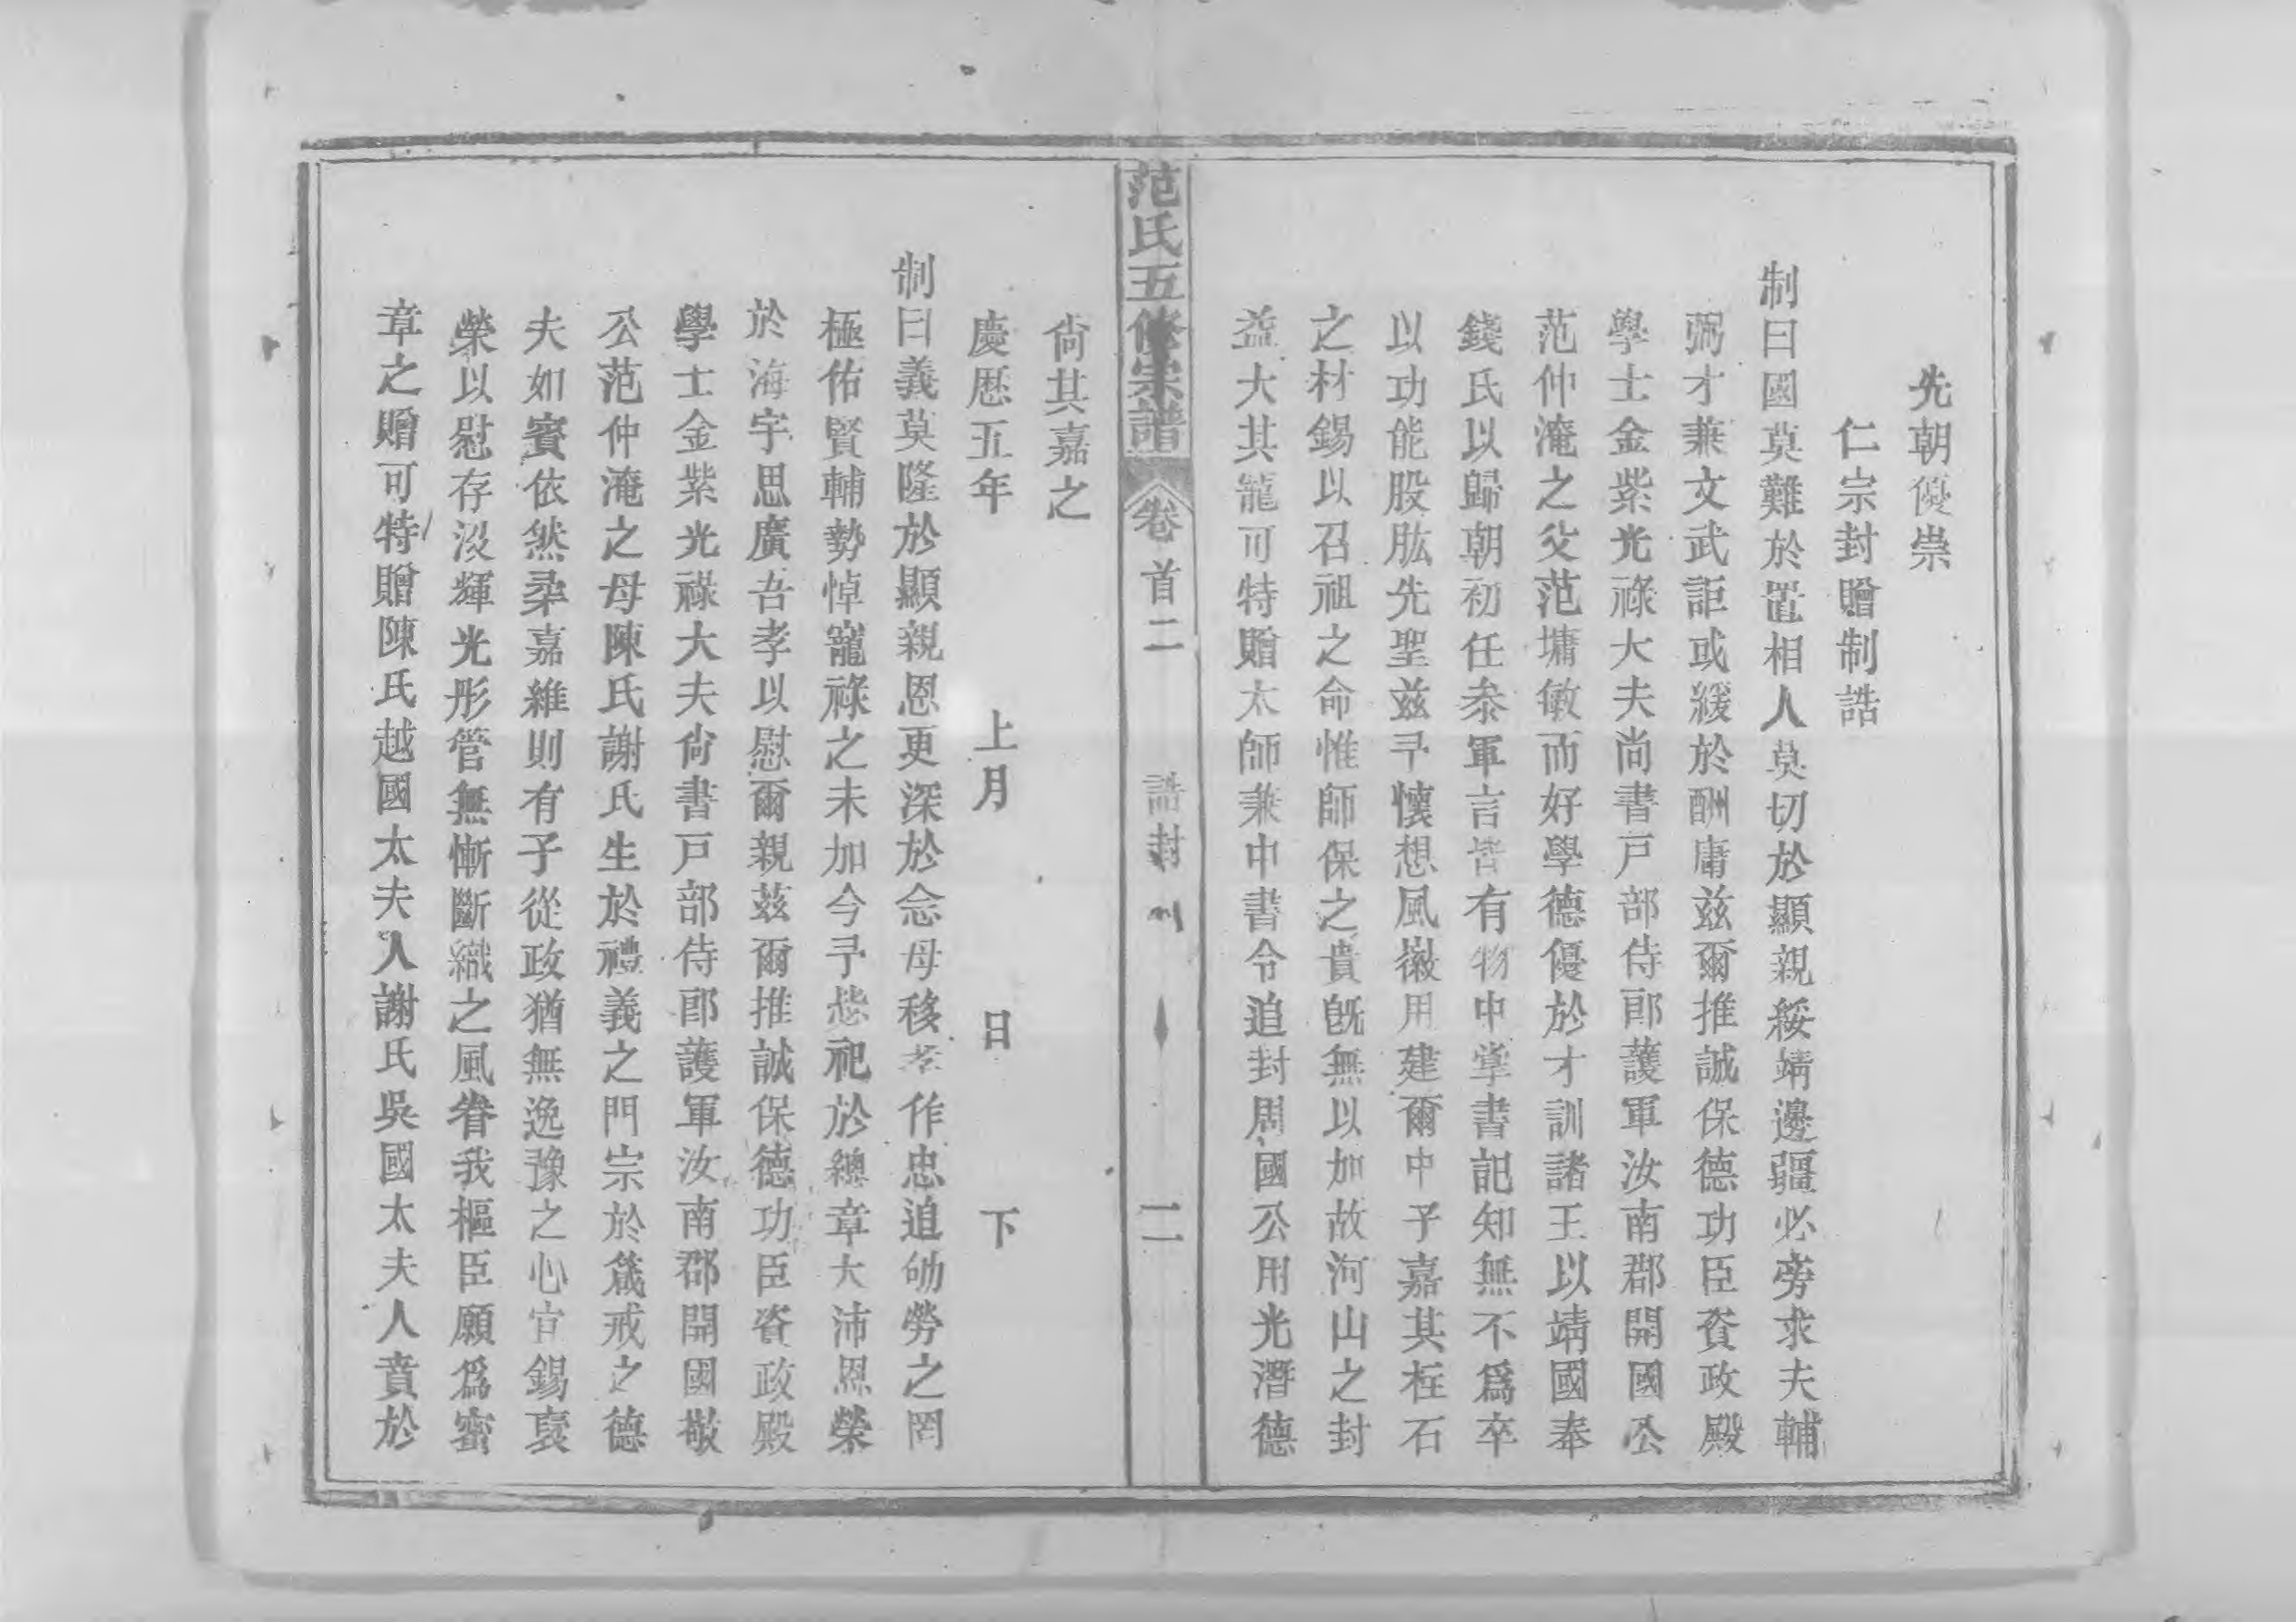 先朝優崇
仁宗封贈制誥
制曰國莫難於置相人莫切於顯親綏靖邊疆必旁求夫輔
弼才兼文武詎或緩於酬庸兹爾推誠保德功臣資政殿
學士金紫光祿大夫尚書戸部侍郎護軍汝南郡開國公
范仲淹之父范墉敏而好學德優於才訓諸王以靖國奉
錢氏以歸朝初任叅軍言皆有物中掌書記知無不爲卒
以功能股肱先聖兹予懷想風徽用建爾中子嘉其柱石
之材錫以召祖之命惟師保之貴旣無以加故河山之封
益大其寵可特贈太師兼中書令追封周國公用光潛德
范氏五修宗譜
卷首二
誥封
二
尙其嘉之
慶厯五年 上月 日 下
制曰義莫隆於顯親恩更深於念母移孝作忠追劬勞之罔
極佑賢輔勢悼寵祿之未加今予恭祀於總章大沛恩榮
於海宇思廣吾孝以慰爾親兹爾推誠保德功臣資政殿
學士金紫光祿大夫尙書戸部侍郎護軍汝南郡開國
公范仲淹之母陳氏謝氏生於禮義之門宗於箴戒之德
夫如賓依然桒嘉維則有子從政猶無逸豫之心宜錫褒
榮以慰存沒輝光彤管無慚斷織之風眷我樞臣願爲密
章之贈可特贈陳氏越國太夫人謝氏吳國太夫人賁於